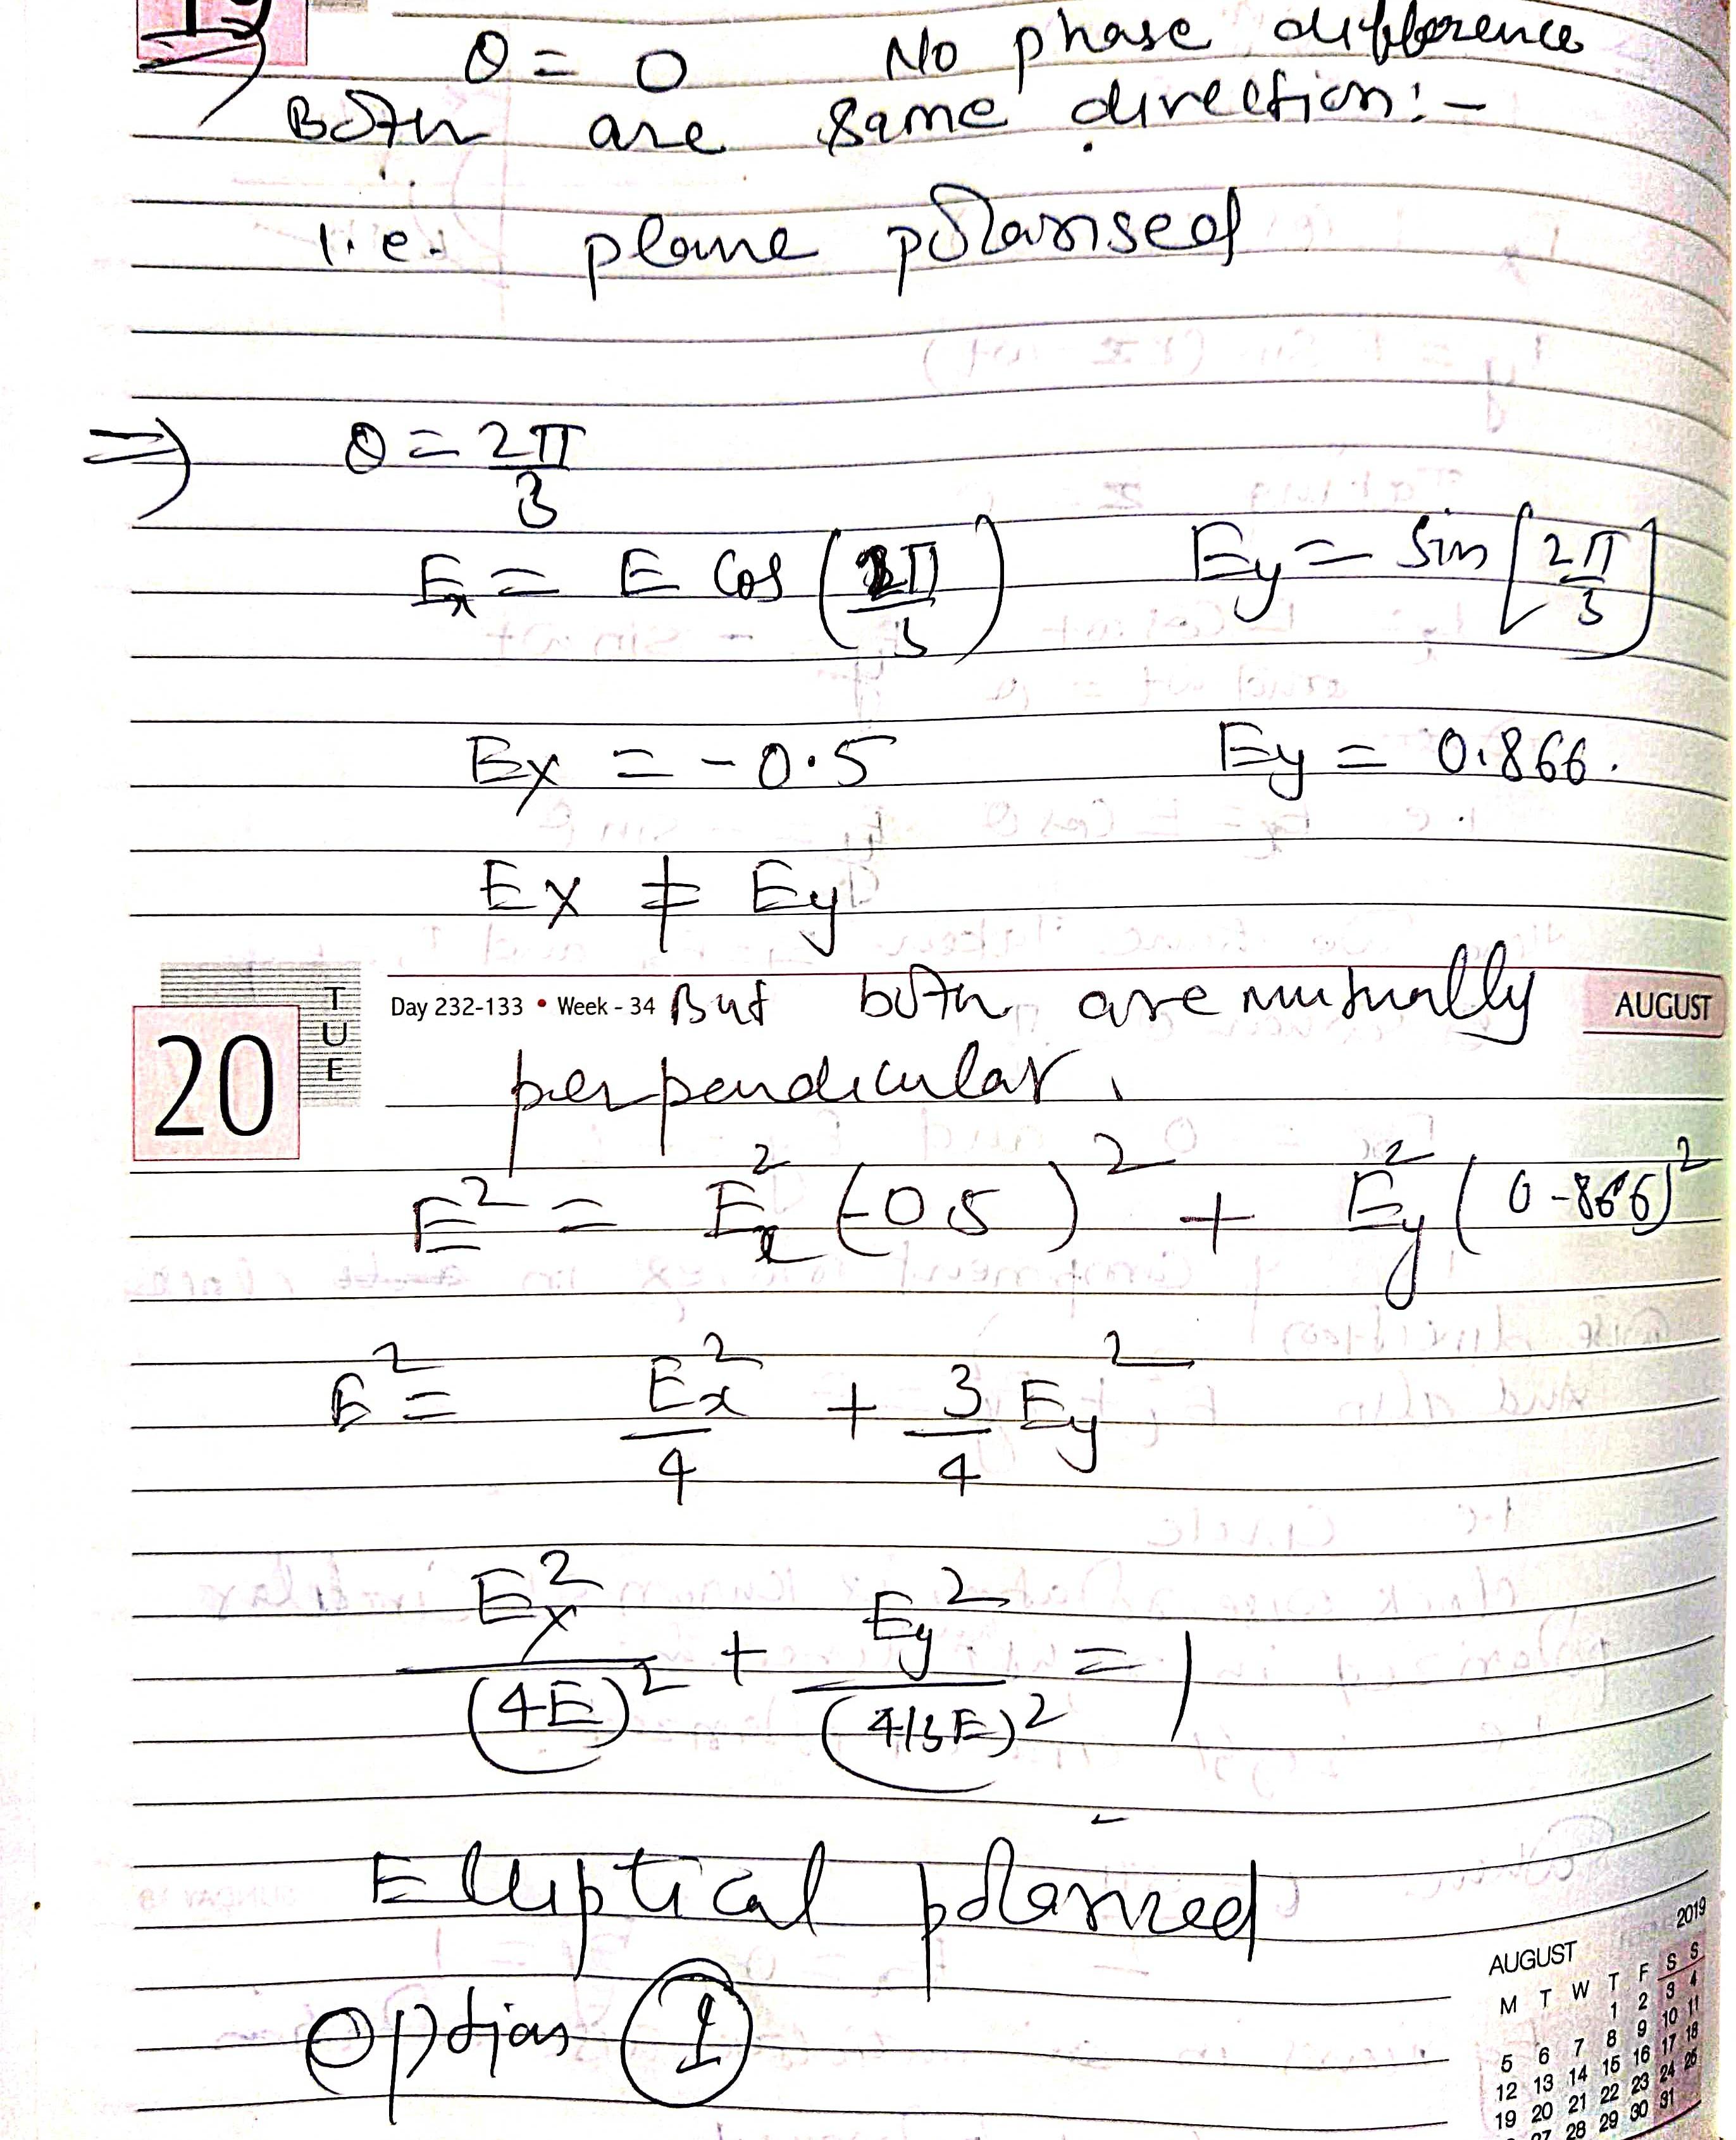 19
θ = 0 No phase difference
Both are same direction:-
i.e. plane polarised
⇒ θ = 2π/3
Ex = E Cos (2π/3) Ey = Sin [2π/3]
Ex = -0.5 Ey = 0.866.
Ex ≠ Ey
20 TUE Day 232-133 • Week - 34 But both are mutually AUGUST
perpendicular.
E² = Ex² (-0.5)² + Ey² (0.866)²
E² = Ex²/4 + 3/4 Ey²
Ex²/(4E)² + Ey²/(4/3E)² = 1
Elliptical polarized
Option 1
AUGUST 2019
M T W T F S S
1 2 3 4
5 6 7 8 9 10 11
12 13 14 15 16 17 18
19 20 21 22 23 24 25
27 28 29 30 31